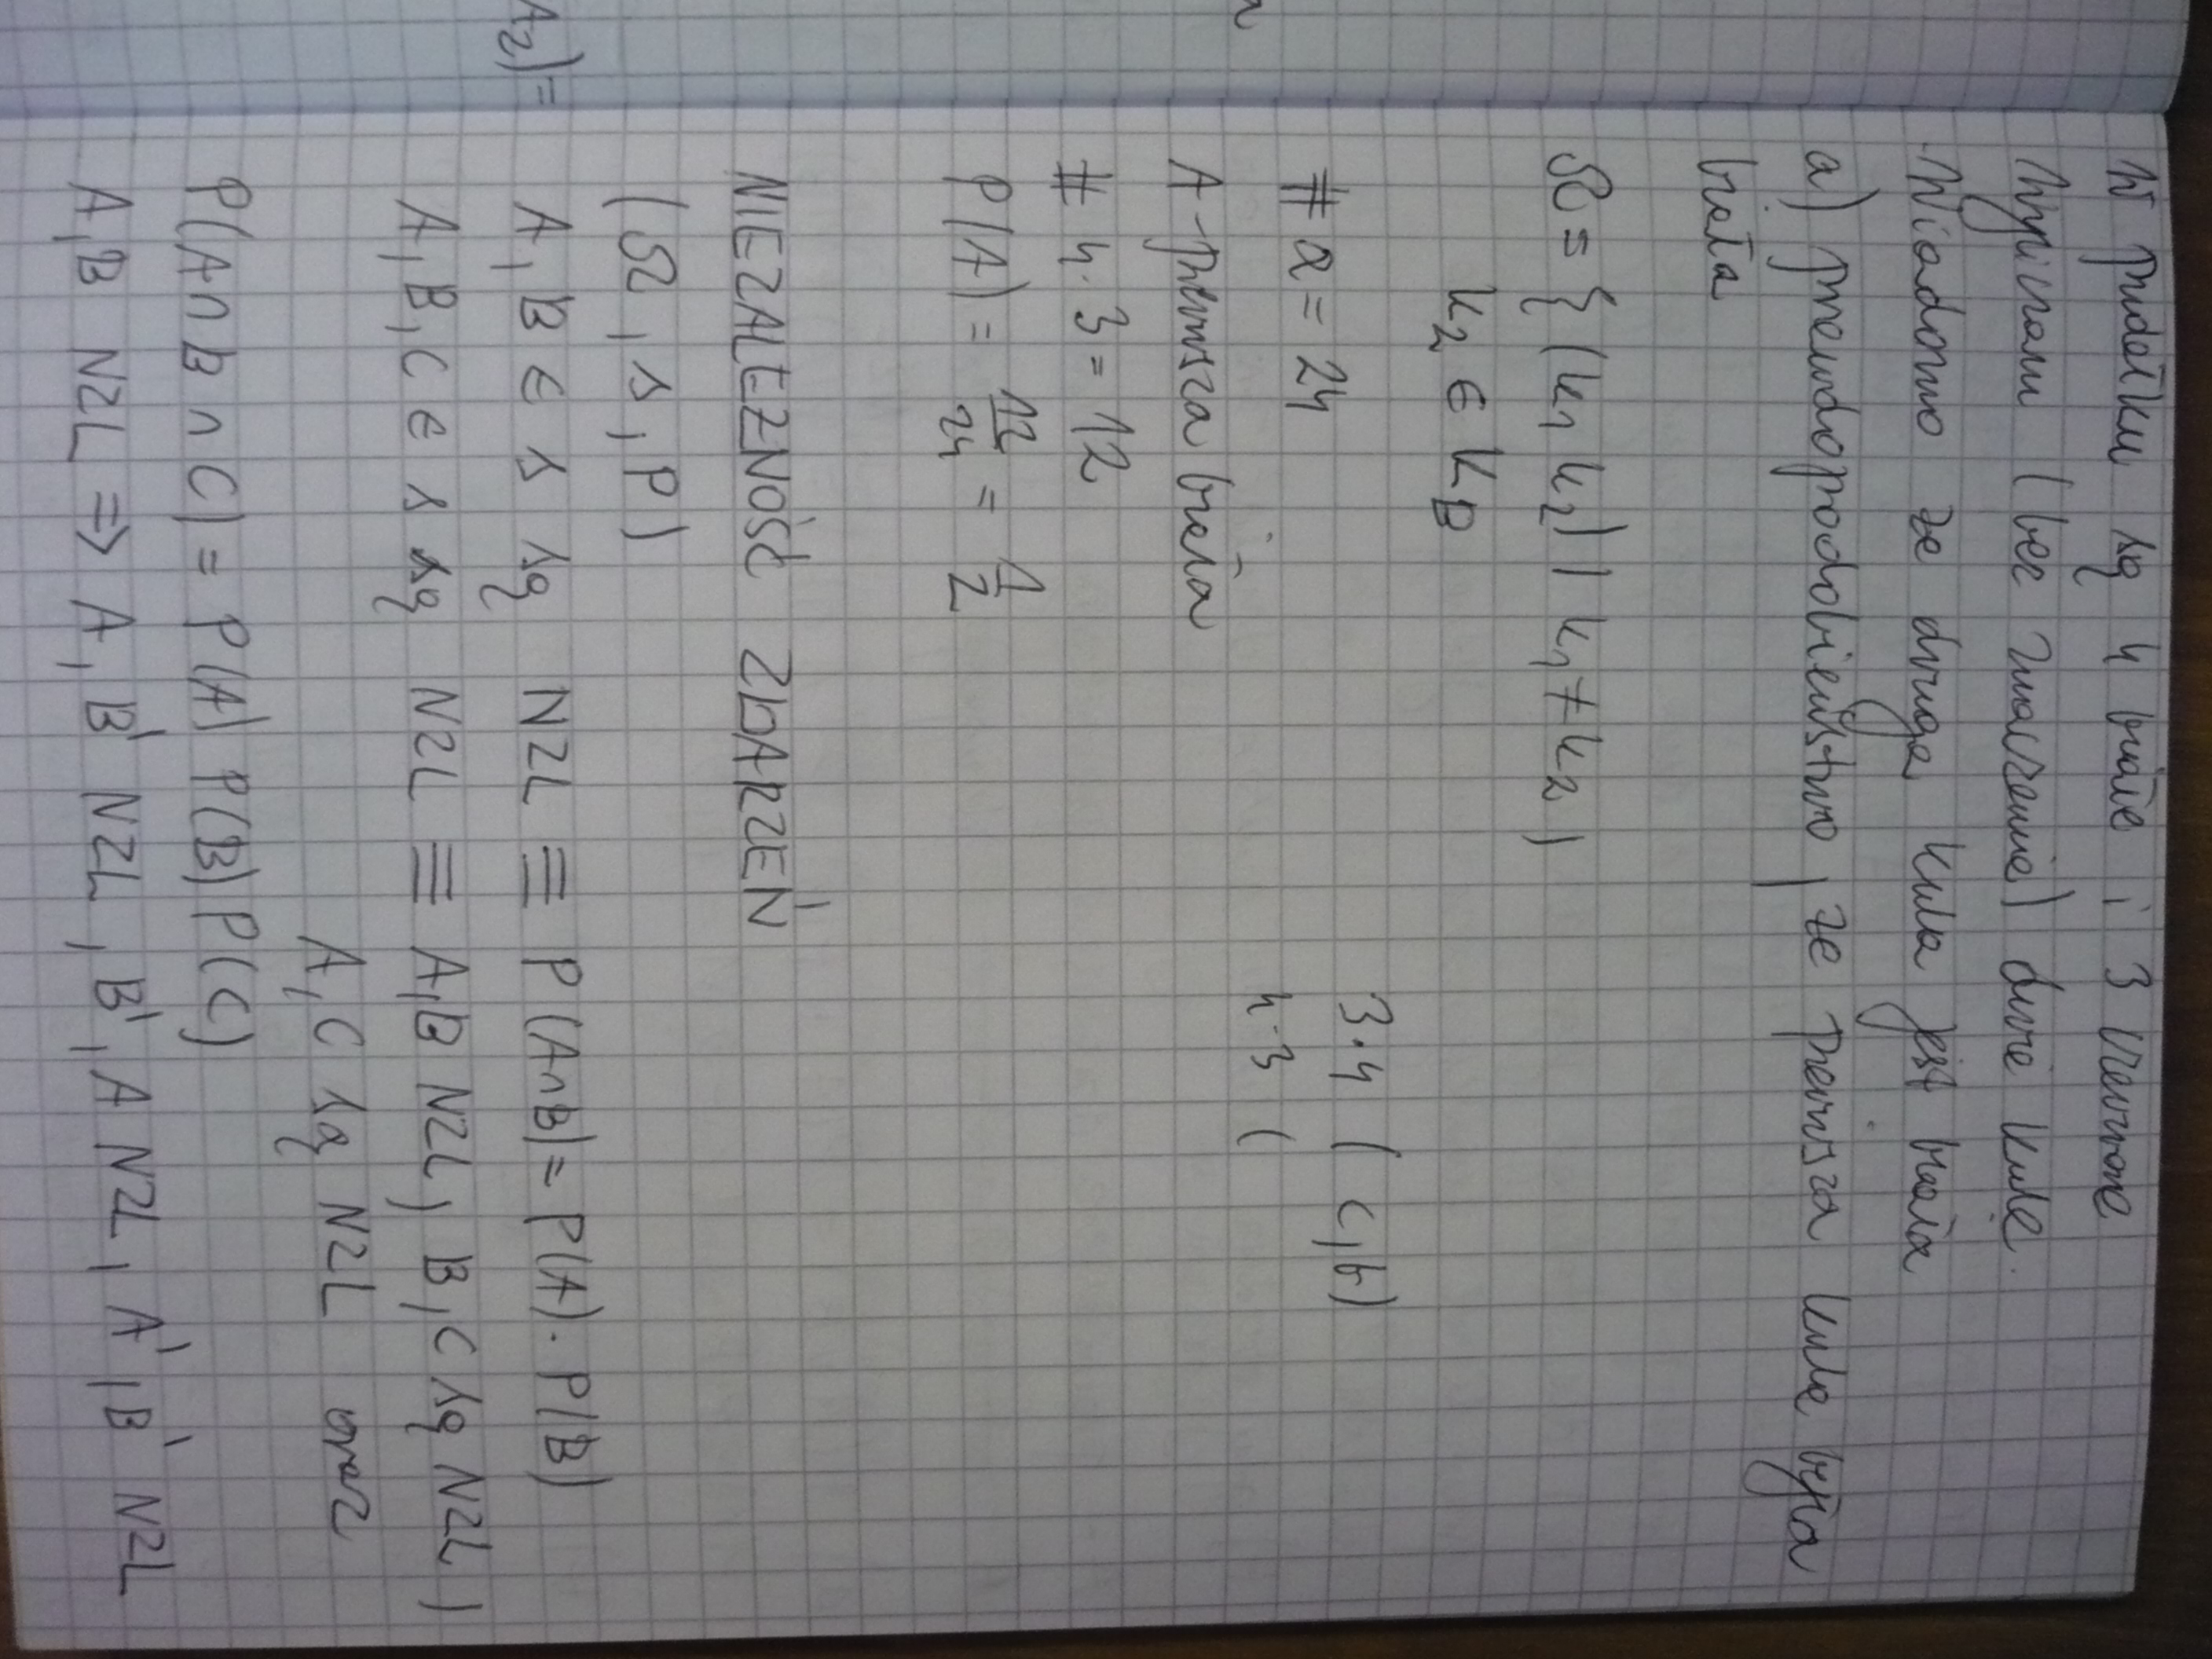 W pudełku są 4 białe i 3 czerwone
Wyciągam (bez zwracania) dwie kule.
Wiadomo że druga kula jest biała
a) prawdopodobieństwo, że pierwsza kula była
biała
Ω = { (k₁ k₂) | k₁ ≠ k₂ )
k₂ ∈ k_B
# Ω = 24
3·4 ( c, b)
4·3 (
A - pierwsza biała
# 4·3 = 12
P(A) = 12/24 = 1/2
NIEZALEŻNOŚĆ ZDARZEŃ
(Ω, S, P)
A, B ∈ S są NZL ≡ P(A∩B) = P(A) · P(B)
A, B, C ∈ S są NZL ≡ A, B NZL, B, C są NZL,
A, C są NZL oraz
P(A∩B∩C) = P(A) P(B) P(C)
A, B NZL ⇒ A, B' NZL, B', A NZL, A', B' NZL
A₂) =
a